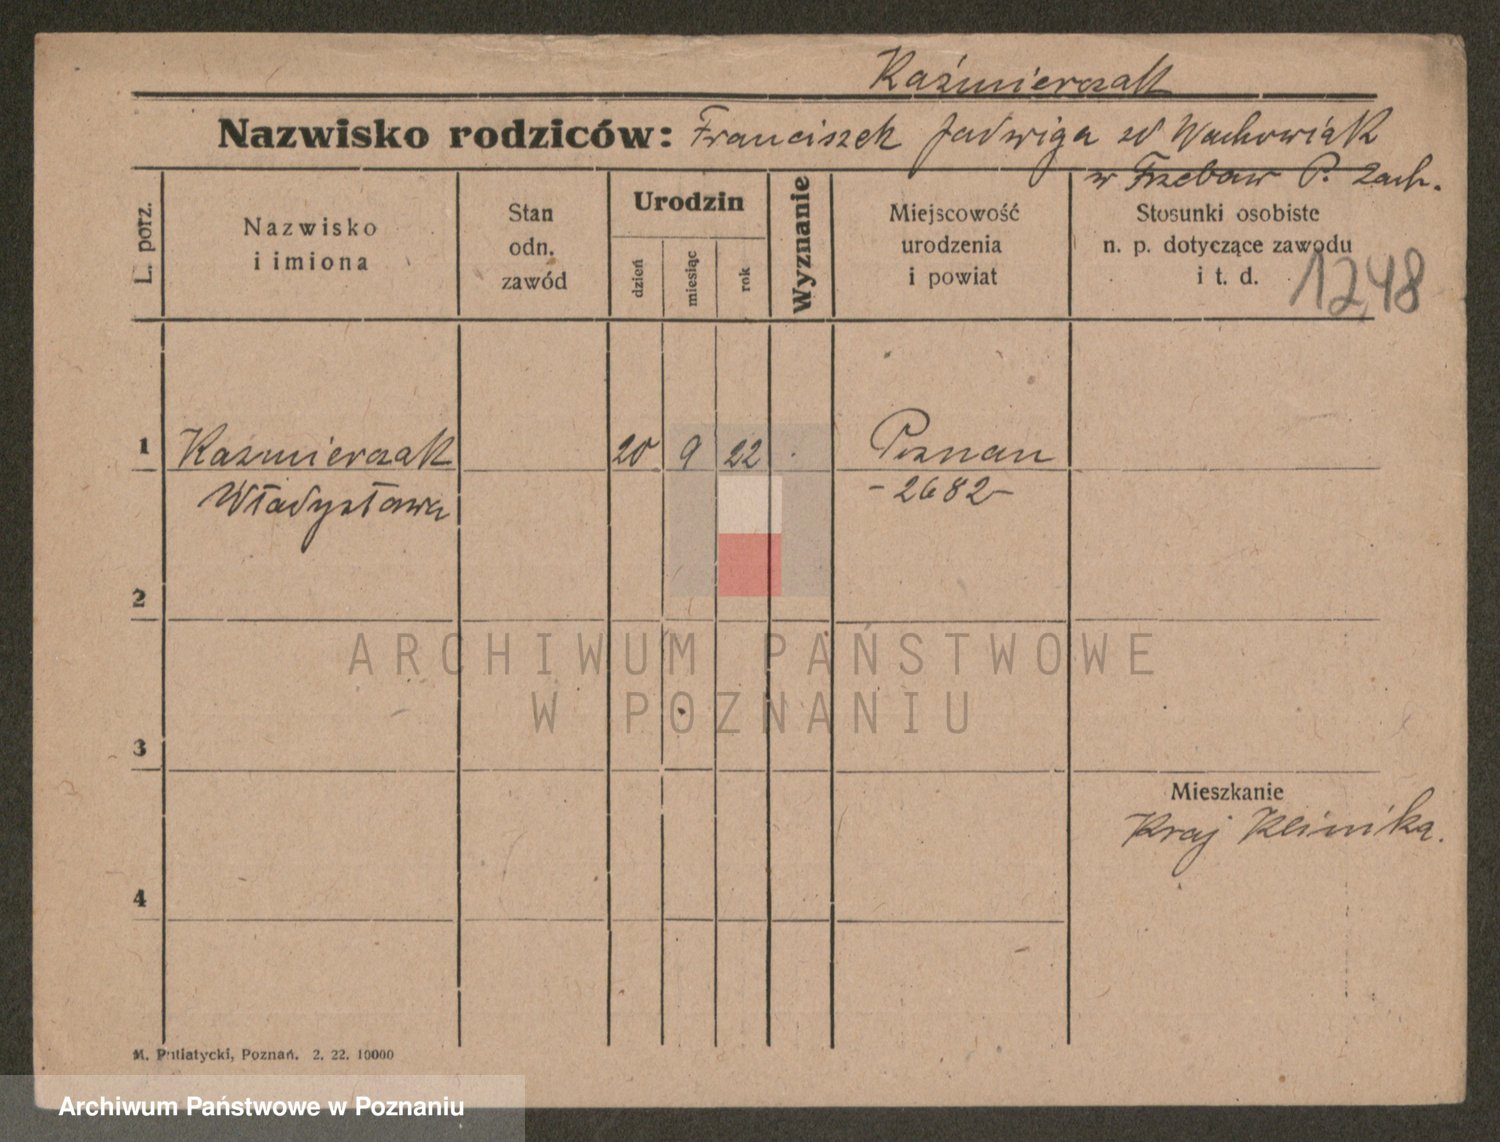 Kaźmierczak
Nazwisko rodziców: Franciszek Jadwiga zd Wachowiak
w Trzebaw P. Zach.
L. porz.
Nazwisko
i imiona
Stan
odn.
zawód
Urodzin
dzień
miesiąc
rok
Wyznanie
Miejscowość
urodzenia
i powiat
Stosunki osobiste
n. p. dotyczące zawodu
i t. d.
12,48
1 Kaźmierczak 20 9 22 Poznan
Władysława -2682-
2
ARCHIWUM PAŃSTWOWE
W POZNANIU
3
Mieszkanie
Kraj Klinika.
4
M. Putiatycki, Poznań. 2. 22. 10000
Archiwum Państwowe w Poznaniu